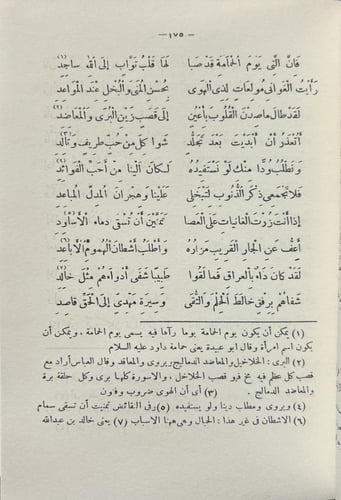 — ١٧٥ —
فَانَّ الَّتِى يَوْمَ الْحَمَامَةِ قَدْ صَبَا لَهَا قَلْبُ تَوَّابٍ إِلَى اللهِ سَاجِدِ (١)
رَأَيْتُ الْغَوَانِى مُولَعَاتٍ لِذِى الْهَوَى بِحُسْنِ الْمُنَى وَالْبُخْلِ عِنْدَ الْمَوَاعِدِ
لَقَدْ طَالَ مَا صِدْنَ الْقُلُوبَ بِأَعْيُنٍ إِلَى قَصَبٍ زَيْنِ الْبُرَى وَالْمَعَاضِدِ (٢)
أَتُعْذَرُ أَنْ أَبْدَيْتَ بَعْدَ تَجَلُّدٍ شَوَاكِلَ مِنْ حُبٍّ طَرِيفٍ وَتَالِدِ (٣)
وَنَطْلُبُ وُدًّا مِنْكَ لَوْ نَسْتَفِيدُهُ لَكَانَ إِلَيْنَا مِنْ أَحَبِّ الْفَوَائِدِ (٤)
فَلَا تَجْمَعِى ذِكْرَ الذُّنُوبِ لِتَبْخَلِى عَلَيْنَا وَهِجْرَانَ الْمُدِلِّ الْمُبَاعِدِ
إِذَا أَنْتَ زُرْتَ الْغَانِيَاتِ عَلَى الْعَصَا تَمَنَّيْنَ أَنْ تُسْقَى دِمَاءَ الْأَسَاوِدِ (٥)
أَعِفُّ عَنِ الْجَارِ الْقَرِيبِ مَزَارُهُ وَأَطْلُبُ أَشْطَانَ الْهُمُومِ الْأَبَاعِدِ (٦)
لَقَدْ كَانَ دَاءٌ بِالْعِرَاقِ فَمَا لَقُوا طَبِيبًا شَفَى أَدْوَاءَهُمْ مِثْلَ خَالِدِ (٧)
شَفَاهُمْ بِرِفْقٍ خَالَطَ الْحِلْمَ وَالتُّقَى وَسِيرَةِ مَهْدِىٍّ إِلَى الْحَقِّ قَاصِدِ
(١) يمكن أن يكون يوم الحمامة يوما رآها فيه يسمى يوم الحمامة ، ويمكن أن
يكون اسم امرأة وقال ابو عبيدة يعنى حمامة داود عليه السلام
(٢) البرى : الخلاخيل والمعاضد الدماليج ويروى والمعاقد وقال العباس أراد مع
قصب كل عظم فيه مخ فهو قصب الخلاخل ، والاسورة كلها برى وكل حلقة برة
والمعاضد الدمالج . (٣) أى أن الهوى ضروب وفنون
(٤) ويروى ومطلب دينا ولو يستفيده (٥) وفى النقائض تمنيت أن تسقى سمام
(٦) الاشطان فى غير هذا : الحبال وهى ههنا الاسباب (٧) يعنى خالد بن عبدالله